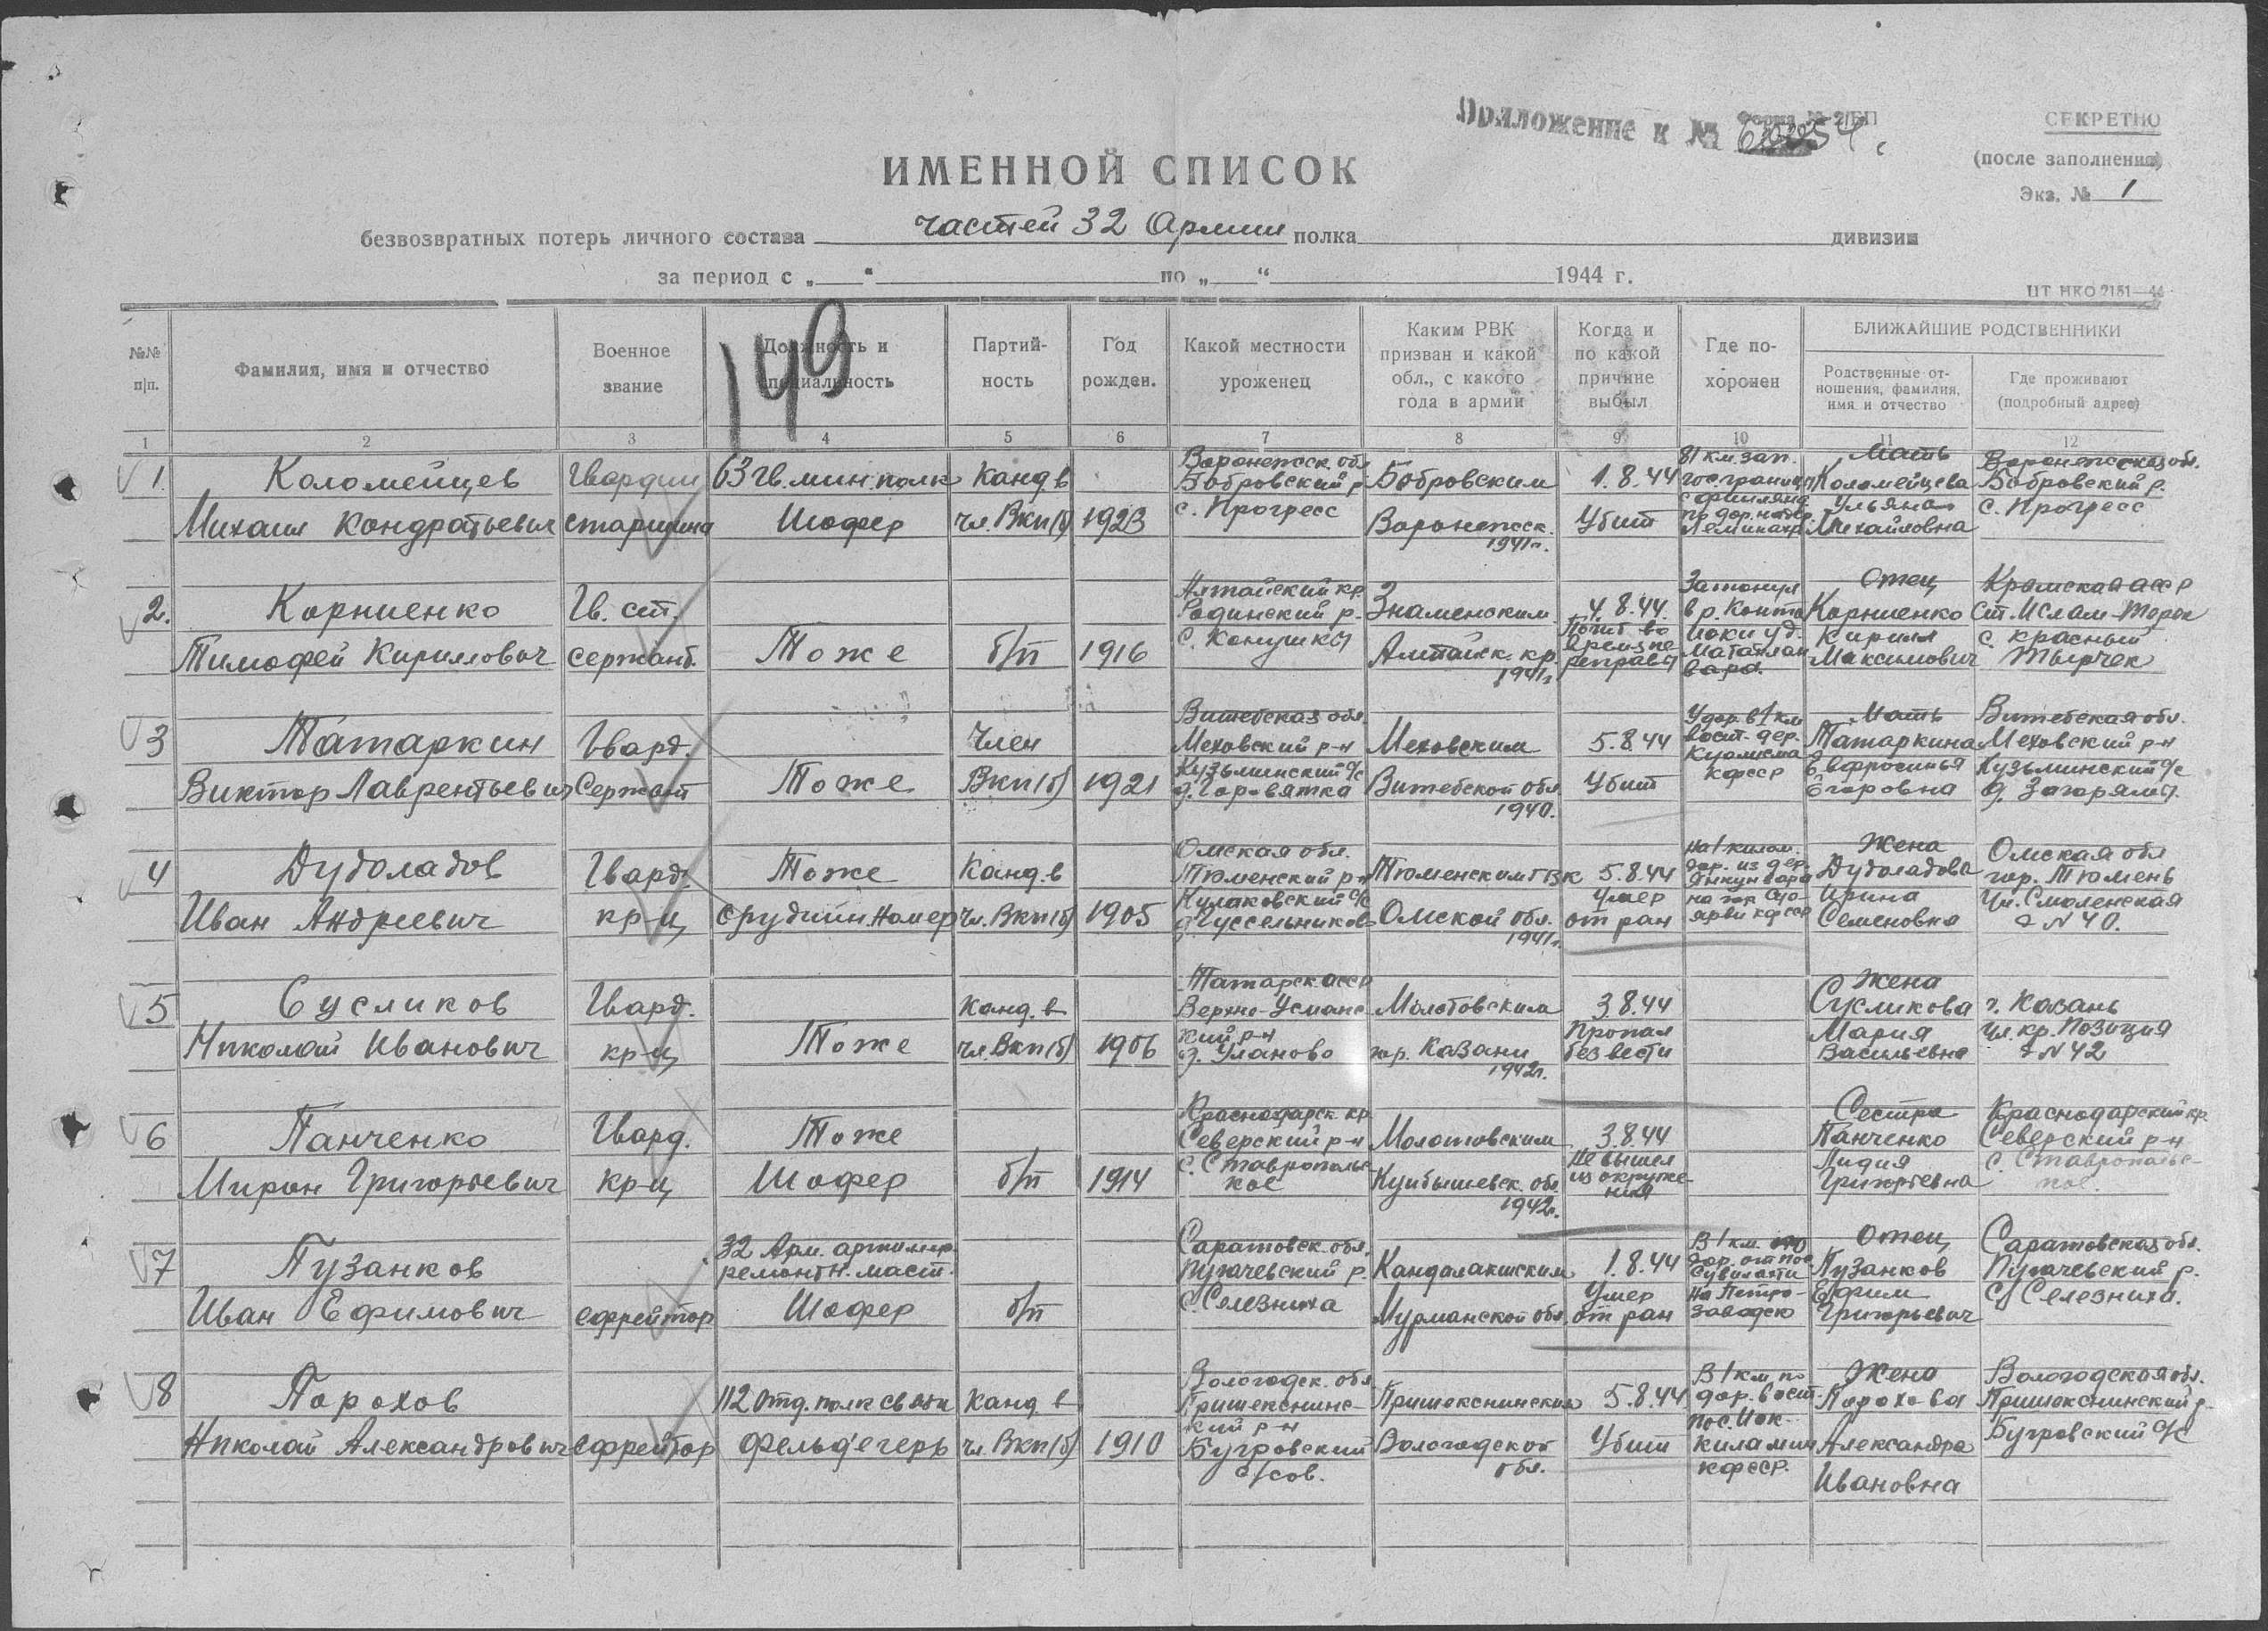 Приложение к №
Форма № 2/БП
СЕКРЕТНО
(после заполнения)
Экз. № 1
ИМЕННОЙ СПИСОК
безвозвратных потерь личного состава частей 32 Армии полка дивизии
за период с „ “ по „ “ 1944 г.
149
№№ п|п.
Фамилия, имя и отчество
Военное звание
Должность и специальность
Партий-
ность
Год рожден.
Какой местности уроженец
Каким РВК
призван и какой
обл., с какого
года в армии
Когда и
по какой
причине
выбыл
Где по-
хоронен
БЛИЖАЙШИЕ РОДСТВЕННИКИ
Родственные от-
ношения, фамилия,
имя и отчество
Где проживают
(подробный адрес)
1 2 3 4 5 6 7 8 9 10 11 12
1.
Коломейцев
Михаил Кондратьевич
Гвардии
старшина
63 гв. мин. полк
Шофер
Канд. в
чл. ВКП(б)
1923
Воронежск. обл
Бобровский р
с. Прогресс
Бобровским
Воронежск.
1941г.
1.8.44
Убит
81 км. зап.
госграницы
Мать
Коломейцева
Ульяна
Михайловна
Воронежская обл.
Бобровский р.
с. Прогресс
2.
Корниенко
Тимофей Кириллович
Гв. ст.
сержант.
Тоже
б/п
1916
Алтайский кр
Родинский р.
С. Кочушка
Знаменским
Алтайск. кр.
1941г.
4.8.44.
Погиб во
время пе
реправы
Затонул
в р.
Отец
Корниенко
Кирилл
Максимович
Крымская асср
Ст. Ислам-Терек
с. Красный
3
Татаркин
Виктор Лаврентьевич
Гвард.
Сержант
Тоже
Член
ВКП(б)
1921
Витебская обл.
Меховский р-н
Кузьминский с/с
Меховским
Витебской обл.
1940.
5.8.44
Убит
У дор. в 1 км
вост. дер.
Куолисма
КФССР
Мать
Татаркина
Евфросинья
Егоровна
Витебская обл.
Меховский р-н
Кузьминский с/с
4
Дудоладов
Иван Андреевич
Гвард.
кр-ц
Тоже
орудийн. номер
Канд. в
чл. ВКП(б)
1905
Омская обл.
Тюменский р-н
Кулаковский с/с
Тюменским ГВК
Омской обл.
1941г.
5.8.44
Умер
от ран
Жена
Дудоладова
Ирина
Семеновна
Омская обл
гор. Тюмень
Ул. Смоленская
д N 40.
5
Сусликов
Николай Иванович
Гвард.
кр-ц
Тоже
Канд. в
чл. ВКП(б)
1906
Татарск. асср
Верхне-Услонс
кий р-н
д. Уланово
Молотовским
гор. Казани
1942г.
3.8.44
Пропал
без вести
Жена
Сусликова
Мария
Васильевна
г. Казань
ул. кр. Позиция
д N 42
6
Панченко
Мирон Григорьевич
Гвард.
кр-ц
Тоже
Шофер
б/п
1914
Краснодарск. кр
Северский р-н
с. Ставрополь-
ское
Молотовским
Куйбышевск. обл.
1942г.
3.8.44
Не вышел
из окруже-
ния
Сестра
Панченко
Лидия
Григорьевна
Краснодарский кр.
Северский р-н
с. Ставропольс-
кое.
7
Пузанков
Иван Ефимович
ефрейтор
32 Арм. артиллер.
ремонтн. маст.
Шофер
б/п
Саратовск. обл.
Пугачевский р.
с. Селезниха
Кандалакшским
Мурманской обл.
1.8.44
Умер
от ран
В 1 км. по
дор. от пос
Сувилахти
на Петро-
заводск
Отец
Пузанков
Ефим
Григорьевич
Саратовская обл.
Пугачевский р.
с. Селезниха.
8
Порохов
Николай Александрович
ефрейтор
112 отд. полк связи
фельд'егерь
Канд. в
чл. ВКП(б)
1910
Вологодск. обл
Пришекснинс-
кий р-н
Бугровский
с/сов.
Пришекснинским
Вологодской
обл.
5.8.44
Убит
В 1 км по
дор. вост.
КФССР.
Жена
Порохова
Александра
Ивановна
Вологодская обл.
Пришекснинский р.
Бугровский с/с